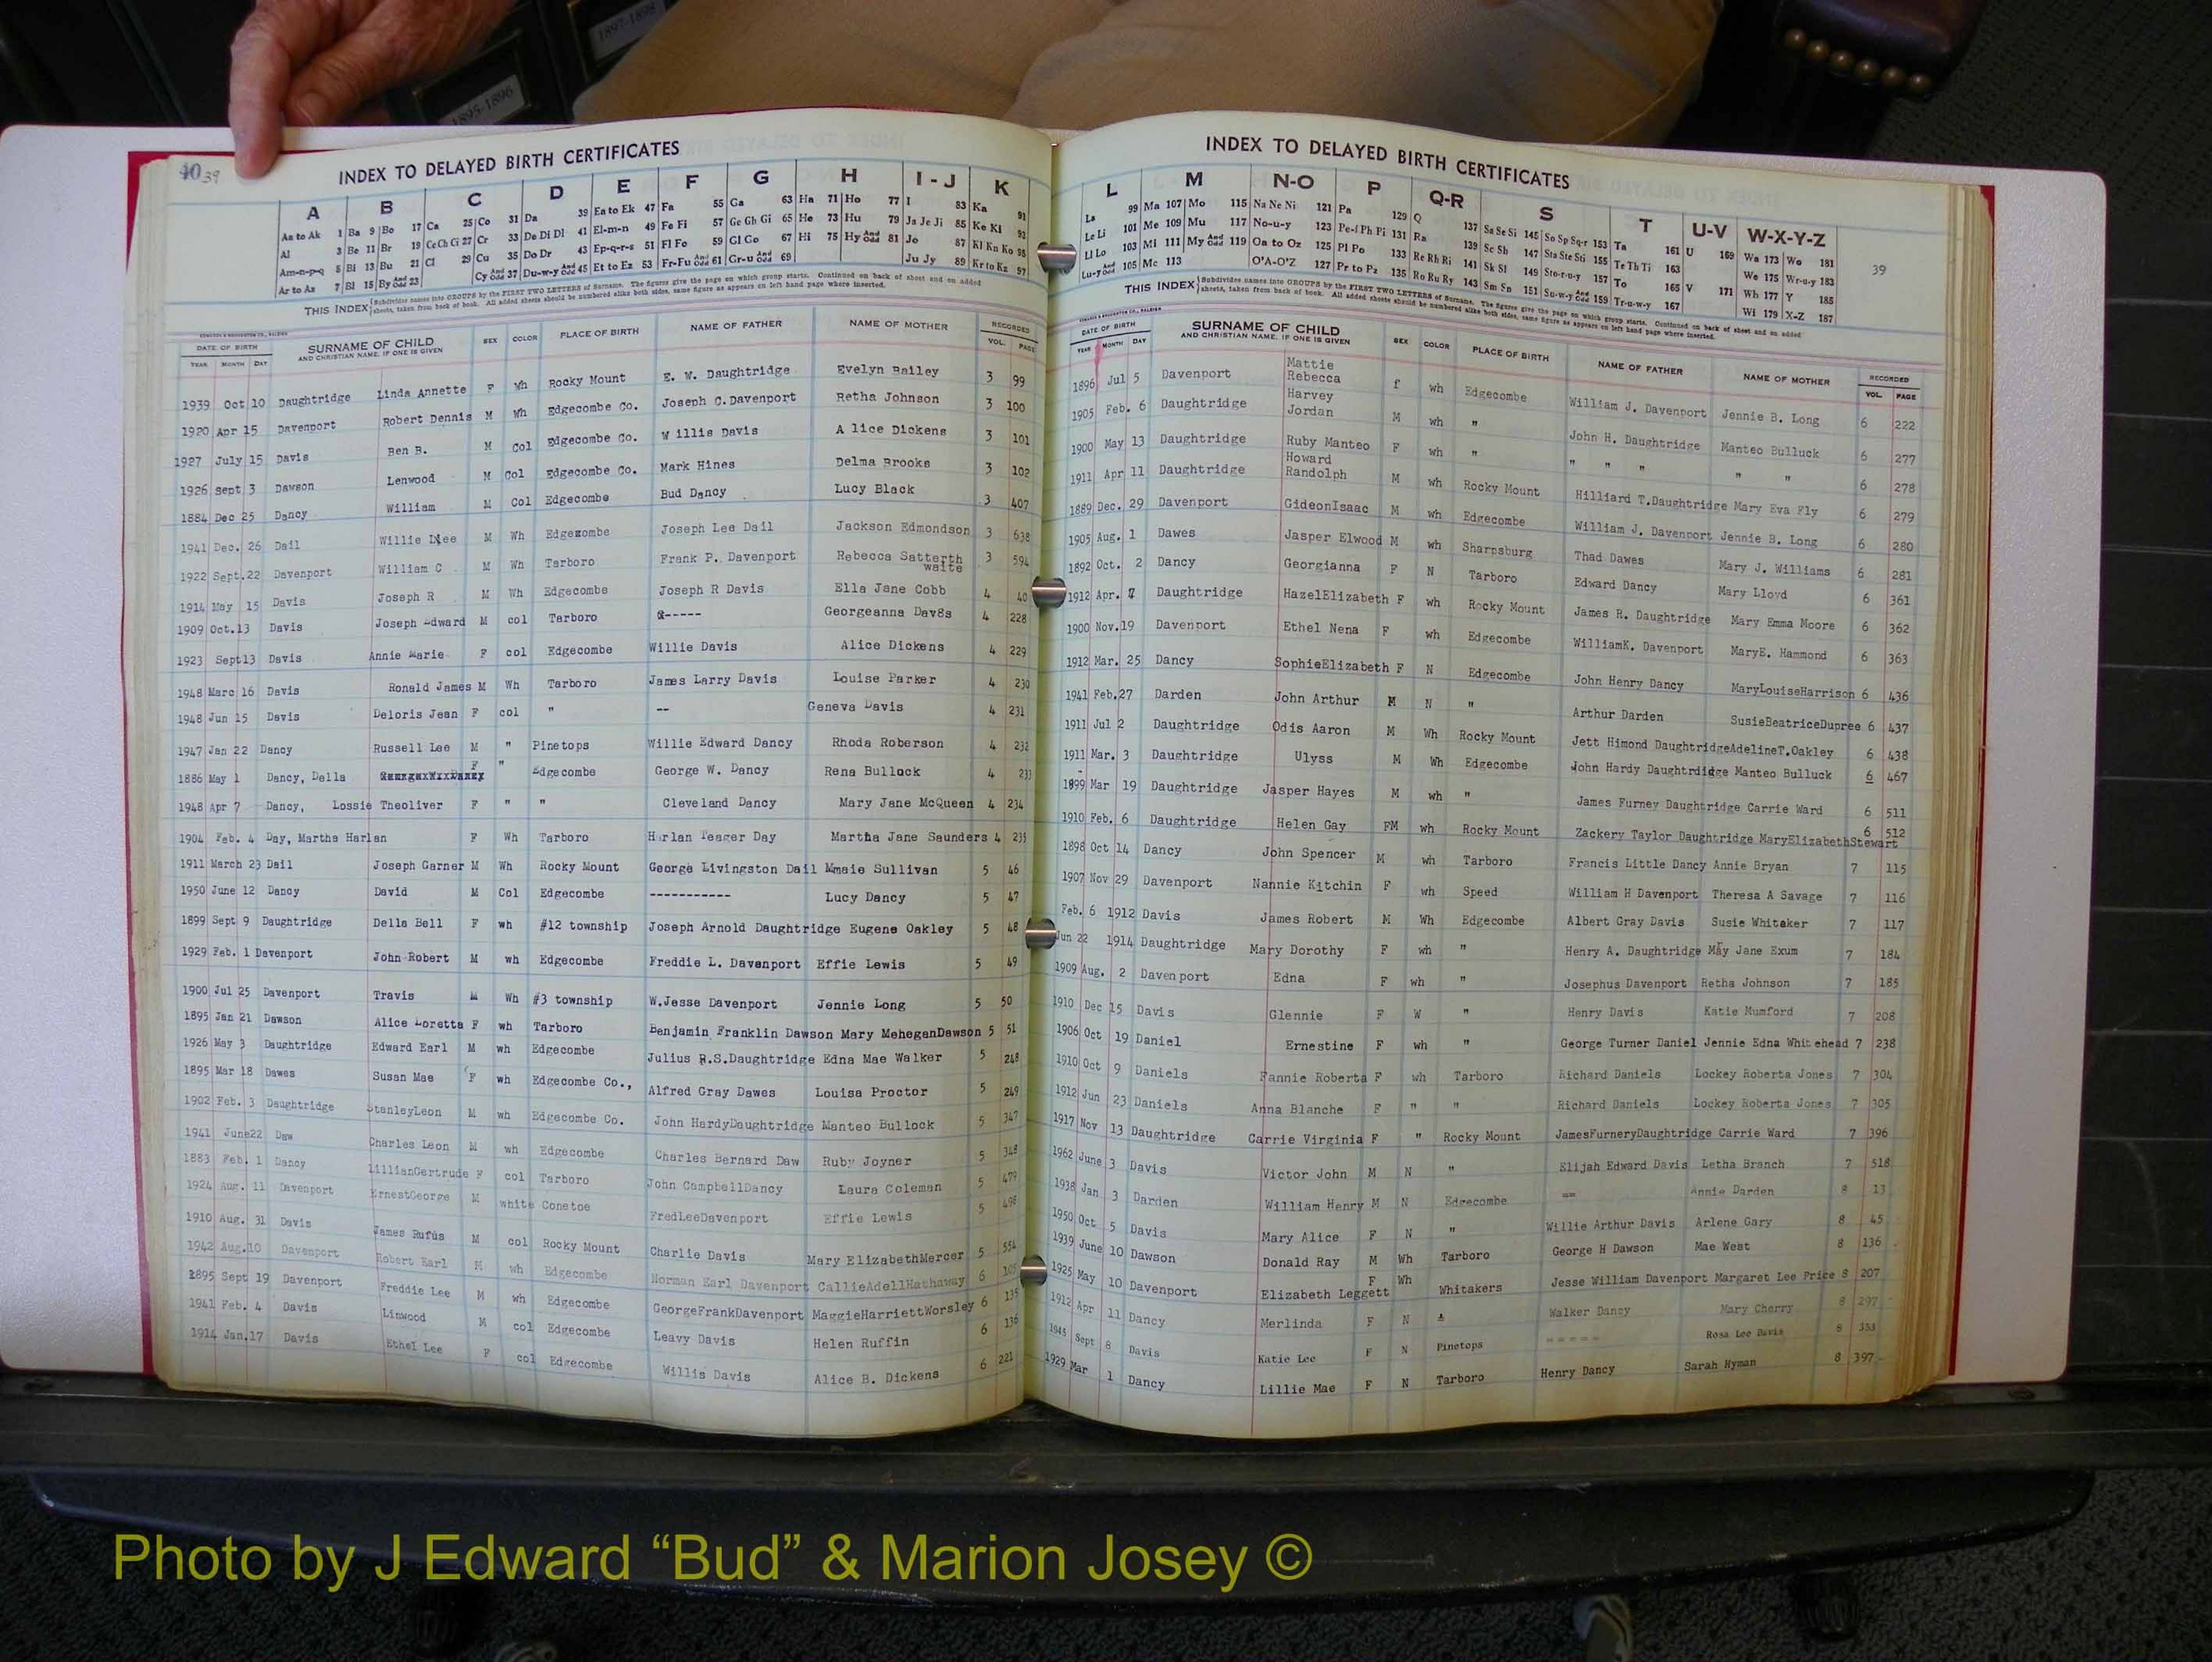 1897-1898
1895-1896
40 39
INDEX TO DELAYED BIRTH CERTIFICATES
A B C D E F G H I - J K
Aa to Ak 1 Ba 9 Bo 17 Ca 25 Co 31 Da 39 Ea to Ek 47 Fa 55 Ga 63 Ha 71 Ho 77 I 83 Ka 91
Al 3 Be 11 Br 19 Ce Ch Ci 27 Cr 33 De Di Dl 41 El-m-n 49 Fe Fi 57 Ge Gh Gi 65 He 73 Hu 79 Ja Je Ji 85 Ke Ki 93
Am-n-p-q 5 Bi 13 Bu 21 Cl 29 Cu 35 Do Dr 43 Ep-q-r-s 51 Fl Fo 59 Gl Go 67 Hi 75 Hy And Odd 81 Jo 87 Kl Kn Ko 95
Ar to Az 7 Bl 15 By And Odd 23 Cy And Odd 37 Du-w-y And Odd 45 Et to Ez 53 Fr-Fu And Odd 61 Gr-u And Odd 69 Ju Jy 89 Kr to Kz 97
THIS INDEX Subdivides names into GROUPS by the FIRST TWO LETTERS of Surname. The figures give the page on which group starts. Continued on back of sheet and on added
sheets, taken from back of book. All added sheets should be numbered alike both sides, same figure as appears on left hand page where inserted.
DATE OF BIRTH SURNAME OF CHILD SEX COLOR PLACE OF BIRTH NAME OF FATHER NAME OF MOTHER RECORDED
YEAR MONTH DAY AND CHRISTIAN NAME, IF ONE IS GIVEN VOL. PAGE
1939 Oct 10 Daughtridge Linda Annette F Wh Rocky Mount E. W. Daughtridge Evelyn Bailey 3 99
1920 Apr 15 Davenport Robert Dennis M Wh Edgecombe Co. Joseph C.Davenport Retha Johnson 3 100
1927 July 15 Davis Ben B. M Col Edgecombe Co. W illis Davis A lice Dickens 3 101
1926 Sept 3 Dawson Lenwood M Col Edgecombe Co. Mark Hines Delma Brooks 3 102
1884 Dec 25 Dancy William M Col Edgecombe Bud Dancy Lucy Black 3 407
1941 Dec. 26 Dail Willie Lee M Wh Edgecombe Joseph Lee Dail Jackson Edmondson 3 638
1922 Sept.22 Davenport William C M Wh Tarboro Frank P. Davenport Rebecca Satterth waite 3 594
1914 May 15 Davis Joseph R M Wh Edgecombe Joseph R Davis Ella Jane Cobb 4 40
1909 Oct.13 Davis Joseph Edward M col Tarboro &----- Georgeanna Dav8s 4 228
1923 Sept13 Davis Annie Marie F col Edgecombe Willie Davis Alice Dickens 4 229
1948 Marc 16 Davis Ronald James M Wh Tarboro James Larry Davis Louise Parker 4 230
1948 Jun 15 Davis Deloris Jean F col " -- Geneva Davis 4 231
1947 Jan 22 Dancy Russell Lee M " Pinetops Willie Edward Dancy Rhoda Roberson 4 232
1886 May 1 Dancy, Della F " Edgecombe George W. Dancy Rena Bullock 4 233
1948 Apr 7 Dancy, Lossie Theoliver F " " Cleveland Dancy Mary Jane McQueen 4 234
1904 Feb. 4 Day, Martha Harlan F Wh Tarboro Harlan Teager Day Martha Jane Saunders 4 235
1911 March 23 Dail Joseph Garner M Wh Rocky Mount George Livingston Dail Mmaie Sullivan 5 46
1950 June 12 Dancy David M Col Edgecombe ----------- Lucy Dancy 5 47
1899 Sept 9 Daughtridge Della Bell F wh #12 township Joseph Arnold Daughtridge Eugene Oakley 5 48
1929 Feb. 1 Davenport John Robert M wh Edgecombe Freddie L. Davenport Effie Lewis 5 49
1900 Jul 25 Davenport Travis M Wh #3 township W.Jesse Davenport Jennie Long 5 50
1895 Jan 21 Dawson Alice Loretta F wh Tarboro Benjamin Franklin Dawson Mary MeheganDawson 5 51
1926 May 3 Daughtridge Edward Earl M wh Edgecombe Julius R.S.Daughtridge Edna Mae Walker 5 248
1895 Mar 18 Dawes Susan Mae F wh Edgecombe Co., Alfred Gray Dawes Louisa Proctor 5 249
1902 Feb. 3 Daughtridge StanleyLeon M wh Edgecombe Co. John HardyDaughtridge Manteo Bullock 5 347
1941 June22 Daw Charles Leon M wh Edgecombe Charles Bernard Daw Ruby Joyner 5 348
1883 Feb. 1 Dancy LillianGertrude F col Tarboro John CampbellDancy Laura Coleman 5 479
1924 Aug. 11 Davenport ErnestGeorge M white Conetoe FredLeeDavenport Effie Lewis 5 498
1910 Aug. 31 Davis James Rufus M col Rocky Mount Charlie Davis Mary ElizabethMercer 5 554
1942 Aug.10 Davenport Robert Earl M wh Edgecombe Norman Earl Davenport CallieAdellHathaway 6
1895 Sept 19 Davenport Freddie Lee M wh Edgecombe GeorgeFrankDavenport MaggieHarriettWorsley 6 135
1941 Feb. 4 Davis Linwood M col Edgecombe Leavy Davis Helen Ruffin 6 136
1914 Jan.17 Davis Ethel Lee F col Edgecombe Willis Davis Alice B. Dickens 6 221
INDEX TO DELAYED BIRTH CERTIFICATES
L M N-O P Q-R S T U-V W-X-Y-Z
La 99 Ma 107 Mo 115 Na Ne Ni 121 Pa 129 Q 137 Sa Se Si 145 So Sp Sq-r 153 Ta 161 U 169 Wa 173 Wo 181
Le Li 101 Me 109 Mu 117 No-u-y 123 Pe-f Ph Pi 131 Ra 139 Sc Sh 147 Sta Ste Sti 155 Te Th Ti 163 We 175 Wr-u-y 183
Ll Lo 103 Mi 111 My And Odd 119 Oa to Oz 125 Pl Po 133 Re Rh Ri 141 Sk Sl 149 Sto-r-u-y 157 To 165 V 171 Wh 177 Y 185
Lu-y And Odd 105 Mc 113 O'A-O'Z 127 Pr to Pz 135 Ro Ru Ry 143 Sm Sn 151 Su-w-y And Odd 159 Tr-u-w-y 167 Wi 179 X-Z 187
39
THIS INDEX Subdivides names into GROUPS by the FIRST TWO LETTERS of Surname. The figures give the page on which group starts. Continued on back of sheet and on added
sheets, taken from back of book. All added sheets should be numbered alike both sides, same figure as appears on left hand page where inserted.
DATE OF BIRTH SURNAME OF CHILD SEX COLOR PLACE OF BIRTH NAME OF FATHER NAME OF MOTHER RECORDED
YEAR MONTH DAY AND CHRISTIAN NAME, IF ONE IS GIVEN VOL. PAGE
1896 Jul 5 Davenport Mattie Rebecca f wh Edgecombe William J. Davenport Jennie B. Long 6 222
1905 Feb. 6 Daughtridge Harvey Jordan M wh " John H. Daughtridge Manteo Bulluck 6 277
1900 May 13 Daughtridge Ruby Manteo F wh " " " " " " 6 278
1911 Apr 11 Daughtridge Howard Randolph M wh Rocky Mount Hilliard T.Daughtridge Mary Eva Fly 6 279
1889 Dec. 29 Davenport GideonIsaac M wh Edgecombe William J. Davenport Jennie B. Long 6 280
1905 Aug. 1 Dawes Jasper Elwood M wh Sharpsburg Thad Dawes Mary J. Williams 6 281
1892 Oct. 2 Dancy Georgianna F N Tarboro Edward Dancy Mary Lloyd 6 361
1912 Apr. 7 Daughtridge HazelElizabeth F wh Rocky Mount James R. Daughtridge Mary Emma Moore 6 362
1900 Nov.19 Davenport Ethel Nena F wh Edgecombe WilliamK. Davenport MaryE. Hammond 6 363
1912 Mar. 25 Dancy SophieElizabeth F N Edgecombe John Henry Dancy MaryLouiseHarrison 6 436
1941 Feb.27 Darden John Arthur M N " Arthur Darden SusieBeatriceDupree 6 437
1911 Jul 2 Daughtridge Odis Aaron M Wh Rocky Mount Jett Himond DaughtridgeAdelineT.Oakley 6 438
1911 Mar. 3 Daughtridge Ulyss M Wh Edgecombe John Hardy Daughtrdidge Manteo Bulluck 6 467
1899 Mar 19 Daughtridge Jasper Hayes M wh " James Furney Daughtridge Carrie Ward 6 511
1910 Feb. 6 Daughtridge Helen Gay FM wh Rocky Mount Zackery Taylor Daughtridge MaryElizabethStewart 6 512
1898 Oct 14 Dancy John Spencer M wh Tarboro Francis Little Dancy Annie Bryan 7 115
1907 Nov 29 Davenport Nannie Kitchin F wh Speed William H Davenport Theresa A Savage 7 116
Feb. 6 1912 Davis James Robert M Wh Edgecombe Albert Gray Davis Susie Whitaker 7 117
Jun 22 1914 Daughtridge Mary Dorothy F wh " Henry A. Daughtridge May Jane Exum 7 184
1909 Aug. 2 Davenport Edna F wh " Josephus Davenport Retha Johnson 7 185
1910 Dec 15 Davis Glennie F W " Henry Davis Katie Mumford 7 208
1906 Oct 19 Daniel Ernestine F wh " George Turner Daniel Jennie Edna Whitehead 7 238
1910 Oct 9 Daniels Fannie Roberta F wh Tarboro Richard Daniels Lockey Roberta Jones 7 304
1912 Jun 23 Daniels Anna Blanche F " " Richard Daniels Lockey Roberta Jones 7 305
1917 Nov 13 Daughtridge Carrie Virginia F " Rocky Mount JamesFurneryDaughtridge Carrie Ward 7 396
1962 June 3 Davis Victor John M N " Elijah Edward Davis Letha Branch 7 518
1938 Jan 3 Darden William Henry M N Edgecombe == Annie Darden 8 13
1950 Oct 5 Davis Mary Alice F N " Willie Arthur Davis Arlene Gary 8 45
1939 June 10 Dawson Donald Ray M Wh Tarboro George H Dawson Mae West 8 136
1925 May 10 Davenport Elizabeth Leggett F Wh Whitakers Jesse William Davenport Margaret Lee Price 8 207
1912 Apr 11 Dancy Merlinda F N Walker Dancy Mary Cherry 8 297
1945 Sept 8 Davis Katie Lee F N Pinetops ===== Rosa Lee Davis 8 353
1929 Mar 1 Dancy Lillie Mae F N Tarboro Henry Dancy Sarah Hyman 8 397
Photo by J Edward “Bud” & Marion Josey ©